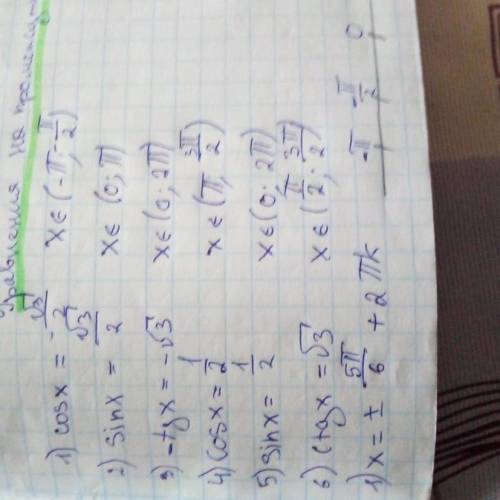 Уравнения на промежутк
1) cosx = -√3/2   x∈(-π; -π/2)
2) sinx = √3/2   x∈(0; π)
3) -tgx = -√3   x∈(0; 2π)
4) cosx = 1/2   x∈(π; 3π/2)
5) sinx = 1/2   x∈(0; 2π)
6) ctgx = √3   x∈(π/2; 3π/2)
1) x = ± 5π/6 + 2πk   -π   -π/2   0